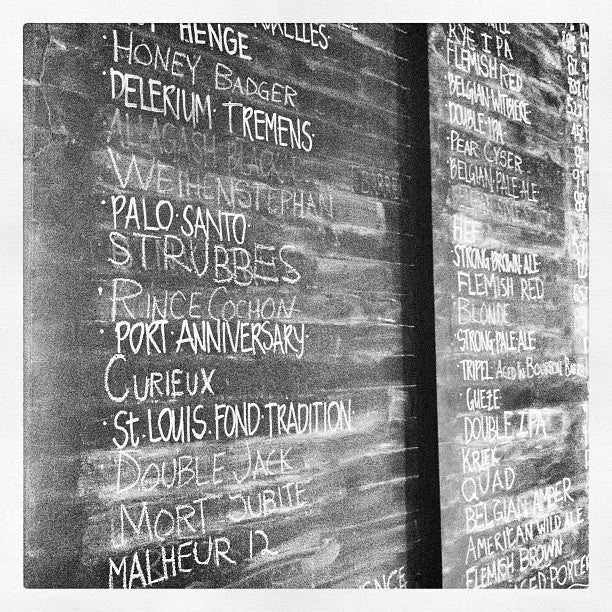 HENGE
HONEY BADGER
DELERIUM TREMENS
ALLAGASH BLACK
WEIHENSTEPHAN
PALO SANTO
STRUBBES
RINCE COCHON
PORT ANNIVERSARY
CURIEUX
St. LOUIS FOND TRADITION
DOUBLE JACK
MORT SUBITE
MALHEUR 12
RYE IPA
FLEMISH RED
BELGIAN WITBIERE
DOUBLE IPA
PEAR CYSER
BELGIAN PALE ALE
HEF
STRONG BROWN ALE
FLEMISH RED
BLONDE
STRONG PALE ALE
TRIPEL AGED IN BOURBON
GUEZE
DOUBLE IPA
KRIEK
QUAD
BELGIAN AMBER
AMERICAN WILD ALE
FLEMISH BROWN